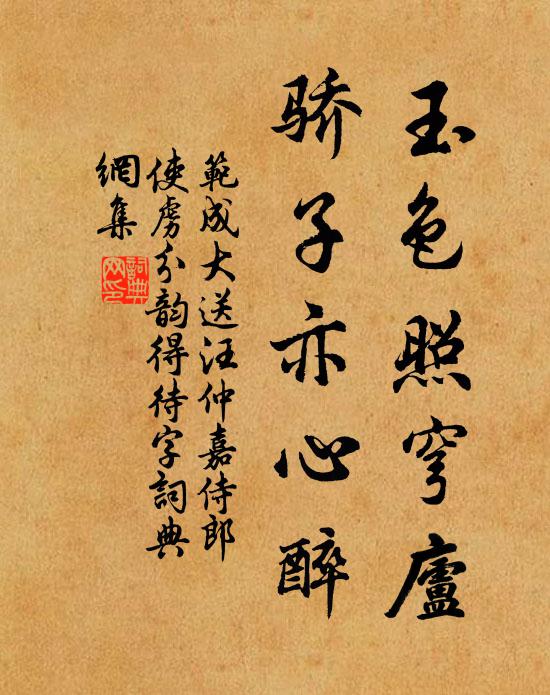 玉色照穹廬
骄子亦心醉
範成大送汪仲嘉侍郎
使虜分韵得待字詞典
網集
詞典網印